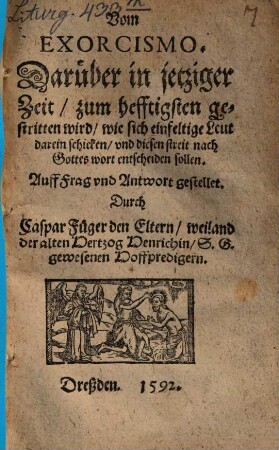 Liturg. 438 m
7
Vom
EXORCISMO.
Darüber in jetziger
Zeit / zum hefftigsten ge-
stritten wird / wie sich einfeltige Leut
darein schicken / vnd diesen streit nach
Gottes wort entscheiden sollen.
Auff Frag vnd Antwort gestellet.
Durch
Caspar Füger den Eltern / weiland
der alten Hertzog Henrichin / S. G.
gewesenen Hoffpredigern.
Dreßden. 1592.